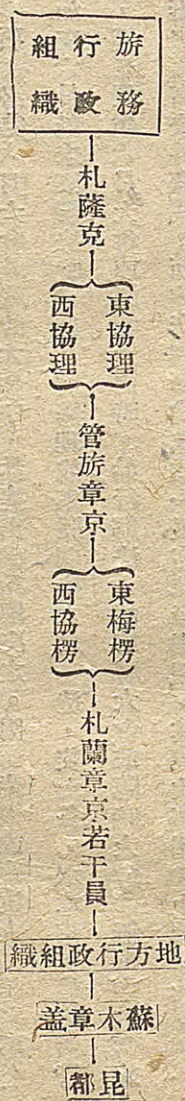 旂務
行政
組織
札薩克
東協理
西協理
管旂章京
東梅楞
西協楞
札蘭章京若干員
地方行政組織
蘇木章盖
昆都